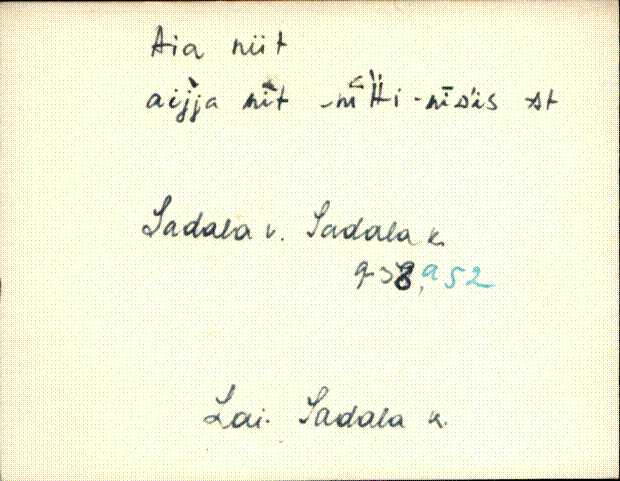 Aia niit
aijja nìt -nītti -nīsis st
Sadala v. Sadala k.
938, a 52
Lai. Sadala k.